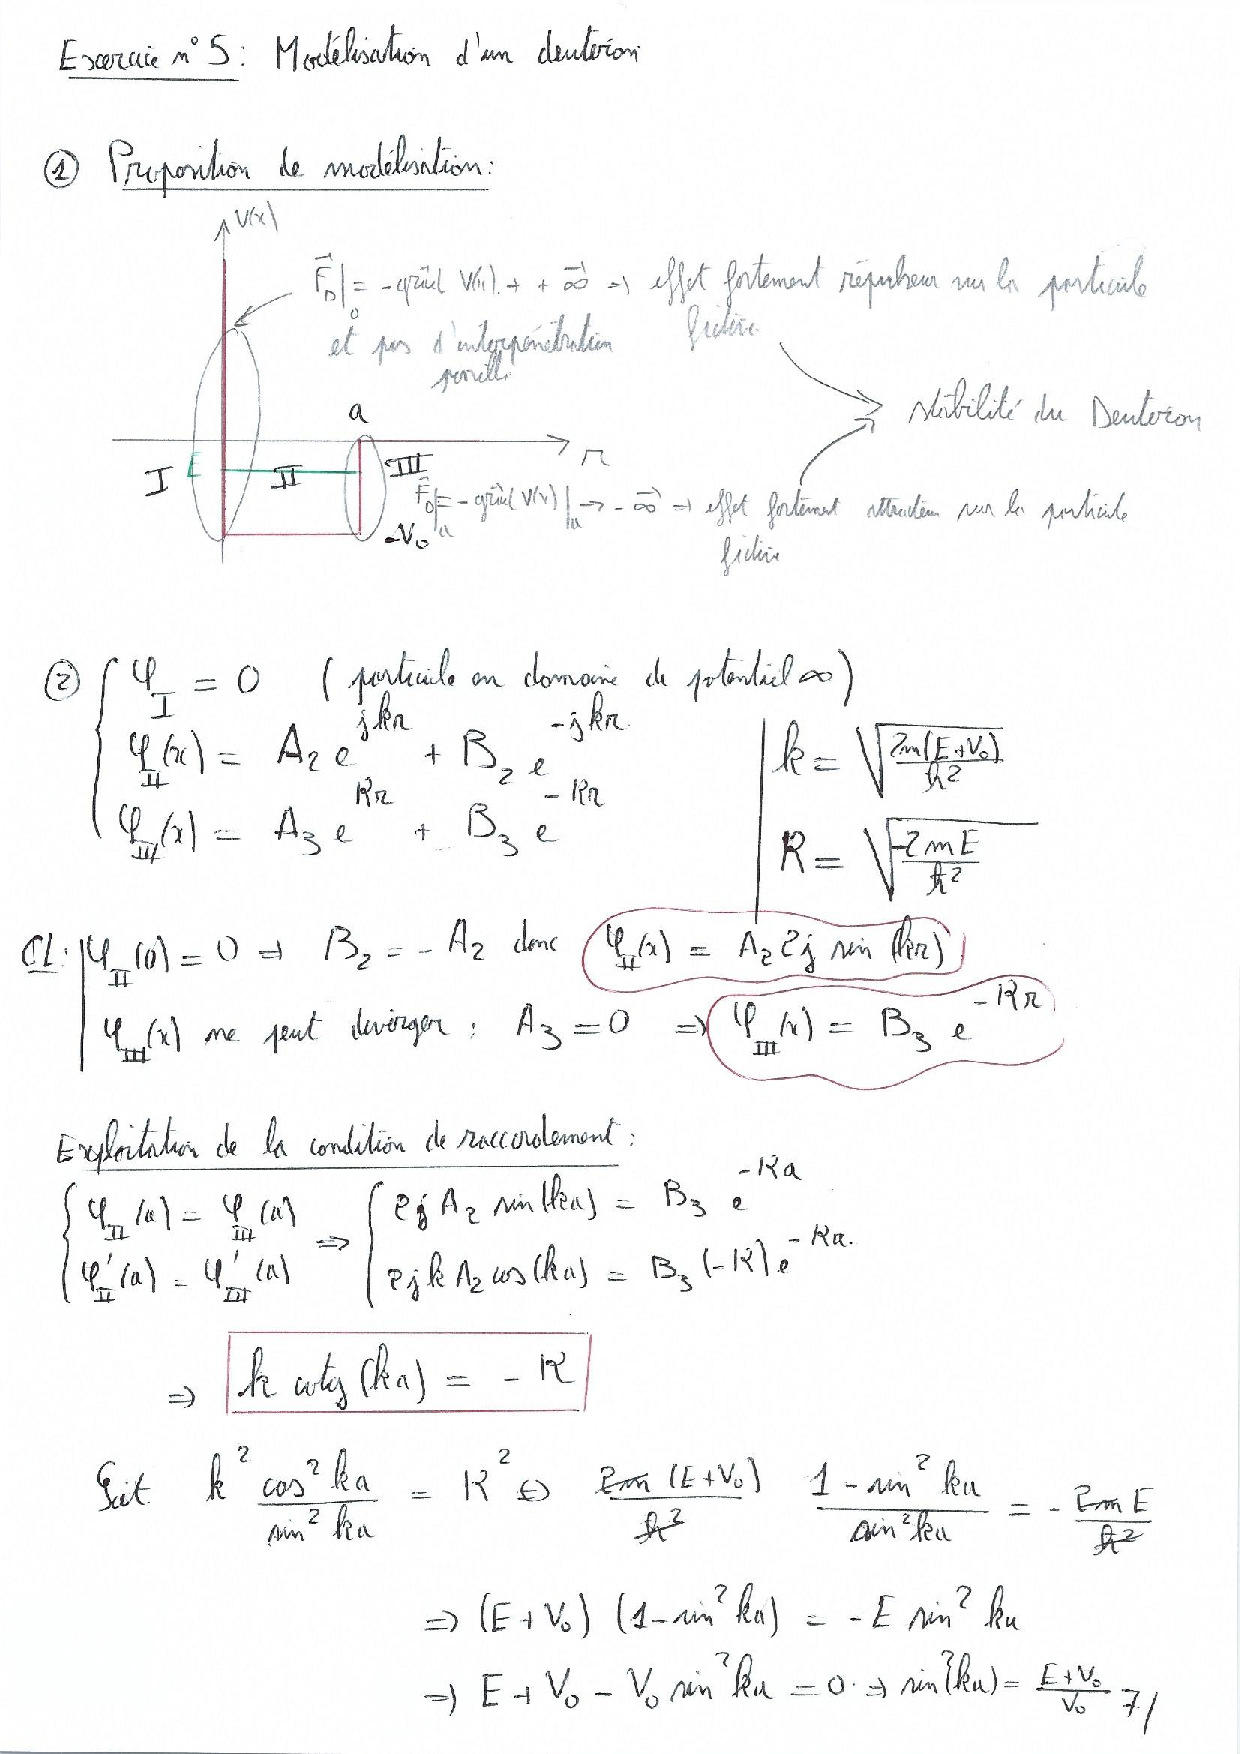 Exercice n° 5 : Modélisation d'un deutéron
① Proposition de modélisation :
V(x)
F_D|_0 = -grad V(r) → +∞ ⇒ effet fortement répulseur sur la particule fictive
et pas d'interpénétration
a
stabilité du Deutéron
I E II III r
F_D|_a = -grad V(r)|_a → -∞ ⇒ effet fortement attracteur sur la particule fictive
-V₀
② φ_I = 0 (particule en domaine de potentiel ∞)
φ_II(x) = A₂ e^{jkr} + B₂ e^{-jkr}
k = √(2m(E+V₀)/ħ²)
φ_III(x) = A₃ e^{Kr} + B₃ e^{-Kr}
K = √(-2mE/ħ²)
CL : φ_II(0) = 0 ⇒ B₂ = - A₂ donc φ_II(x) = A₂ 2j sin(kr)
φ_III(x) ne peut diverger : A₃ = 0 ⇒ φ_III(x) = B₃ e^{-Kr}
Exploitation de la condition de raccordement :
φ_II(a) = φ_III(a) ⇒ 2j A₂ sin(ka) = B₃ e^{-Ka}
φ'_II(a) = φ'_III(a) 2jk A₂ cos(ka) = B₃(-K) e^{-Ka}
⇒ k cotg(ka) = - K
Soit k² cos² ka / sin² ka = K² ⇔ 2m(E+V₀)/ħ² (1 - sin² ka)/sin² ka = - 2mE/ħ²
⇒ (E+V₀) (1-sin² ka) = -E sin² ka
⇒ E + V₀ - V₀ sin² ka = 0 ⇒ sin²(ka) = (E+V₀)/V₀ 7/